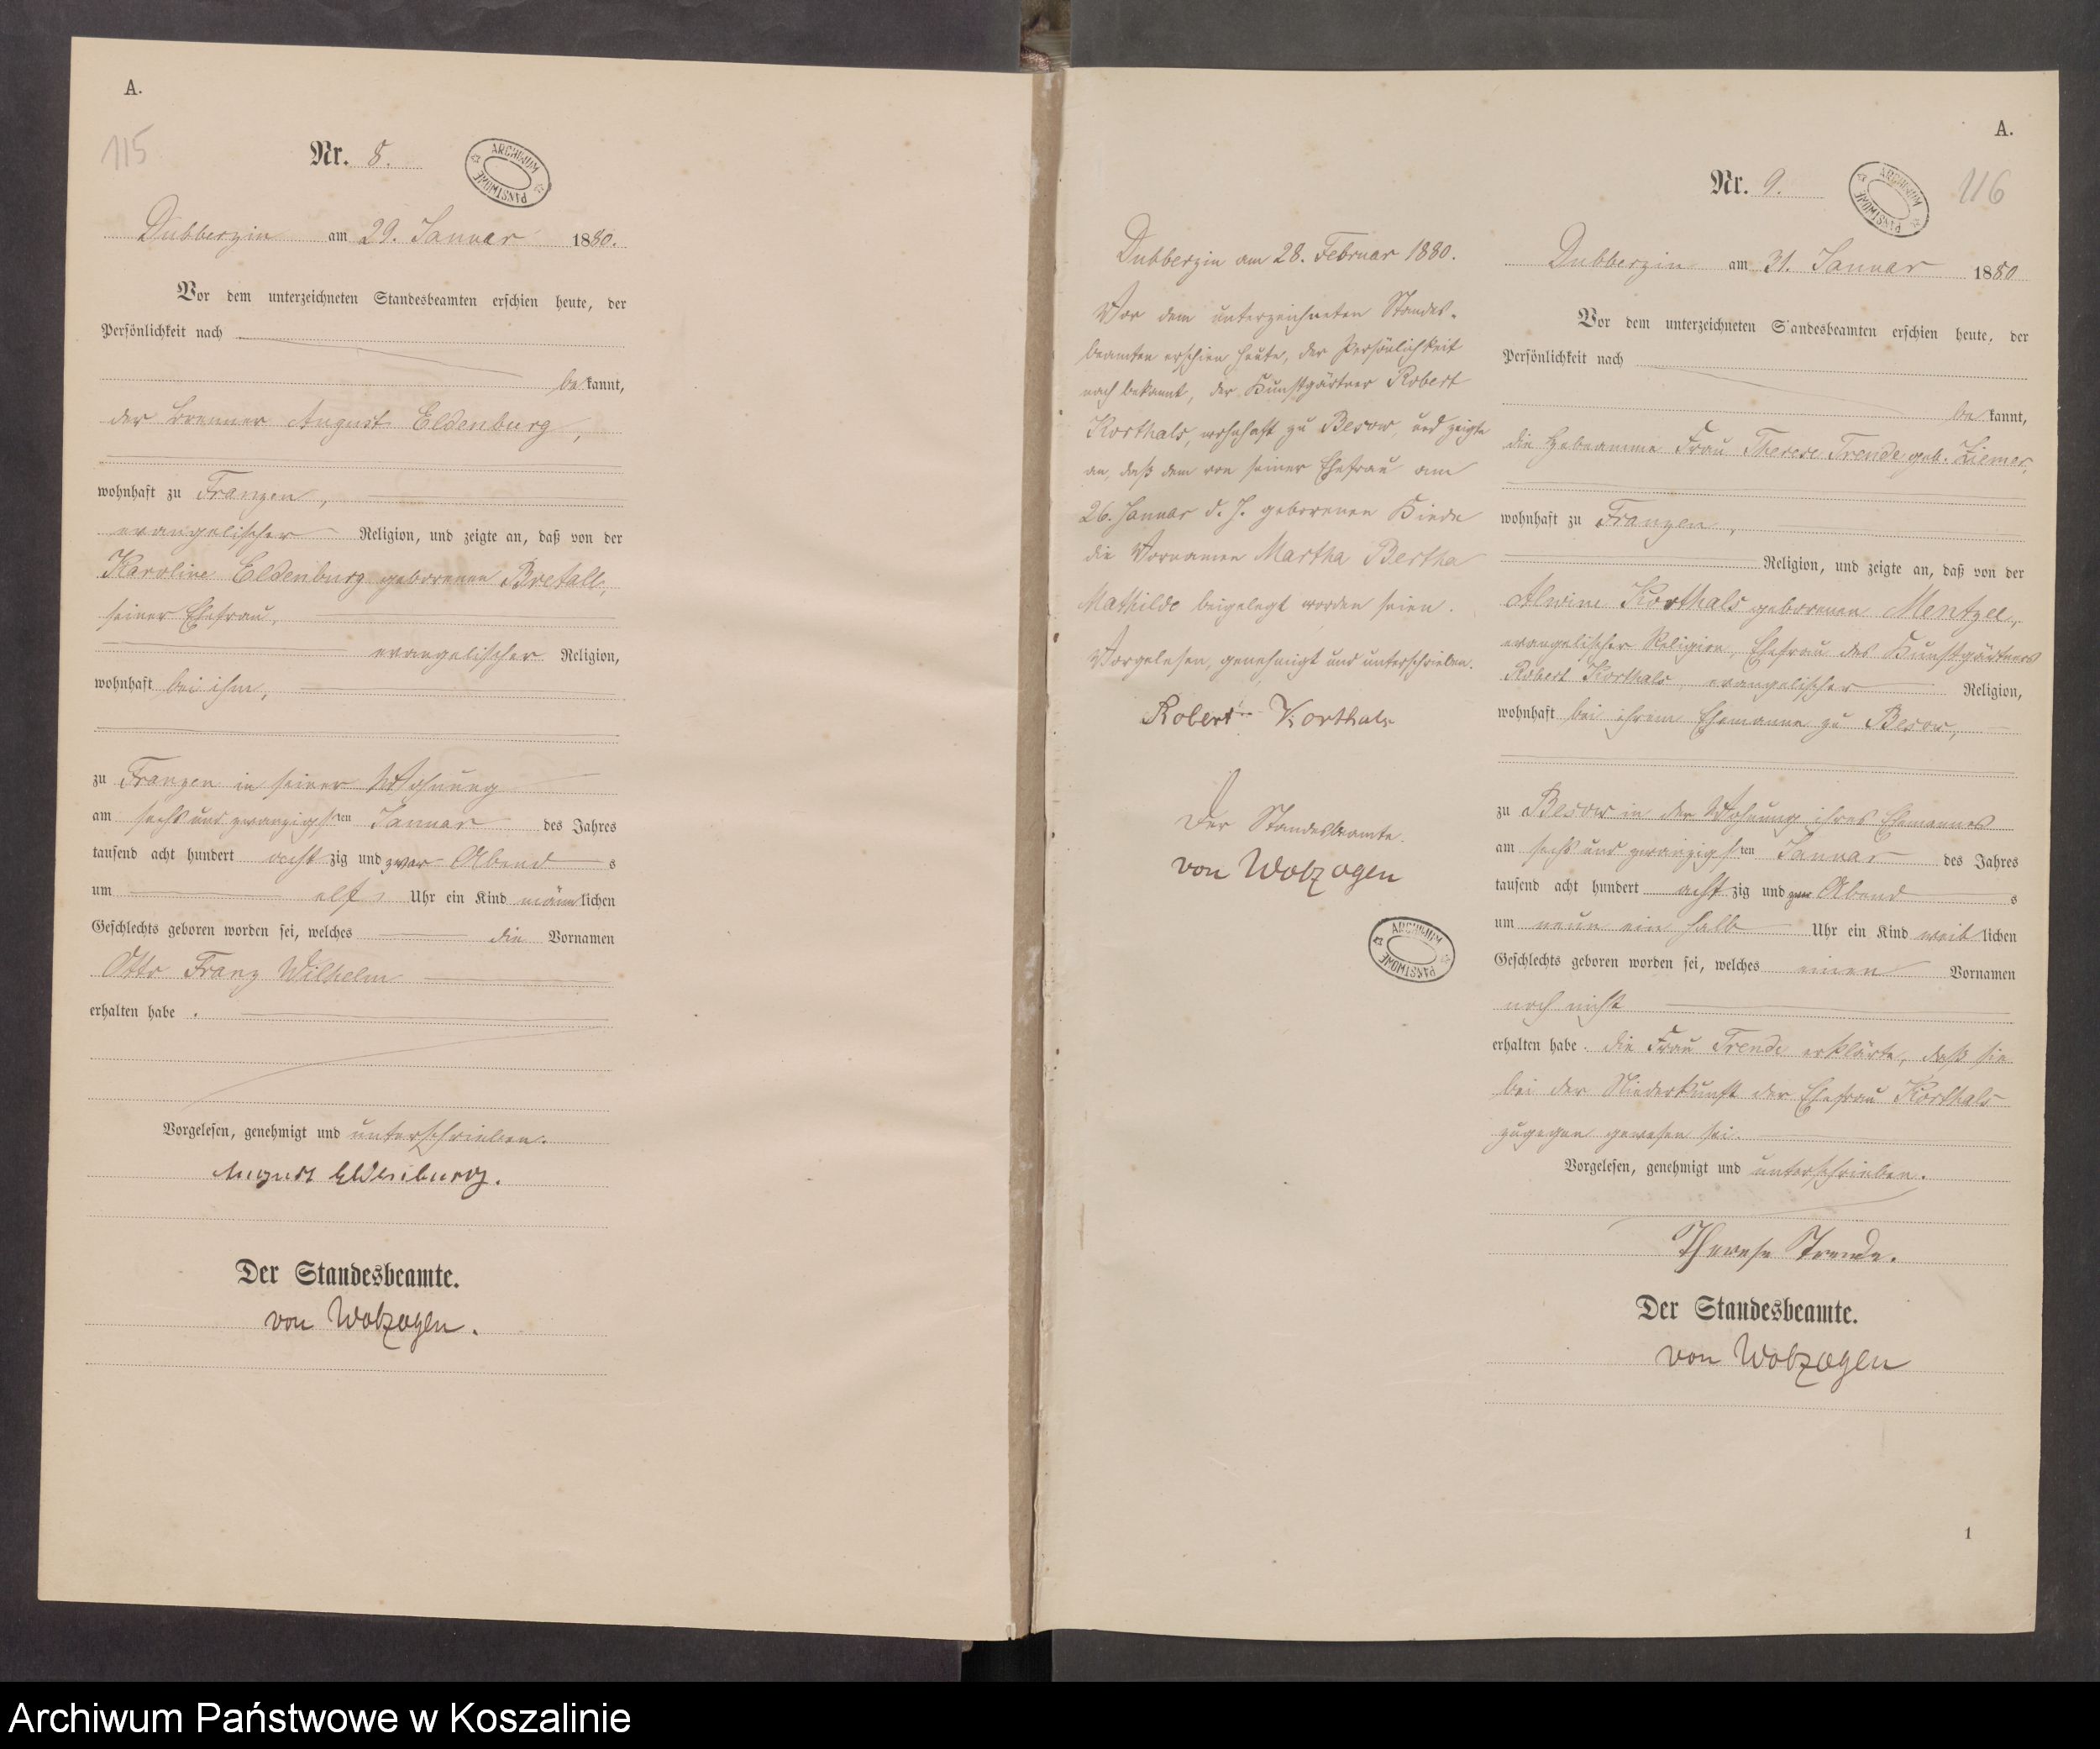 A.
115
Nr. 8.
ARCHIWUM PAŃSTWOWE
Dubberzin am 29. Januar 1880.
Vor dem unterzeichneten Standesbeamten erschien heute, der
Persönlichkeit nach
bekannt,
der Brenner August Eldenburg,
wohnhaft zu Franzen,
evangelischer Religion, und zeigte an, daß von der
Karoline Eldenburg geborenen
seiner Ehefrau,
evangelischer Religion,
wohnhaft bei ihm,
zu Franzen in seiner Wohnung
am sechs und zwanzigsten Januar des Jahres
tausend acht hundert achtzig und zwar Abends
um elf Uhr ein Kind männlichen
Geschlechts geboren worden sei, welches die Vornamen
Otto Franz Wilhelm
erhalten habe.
Vorgelesen, genehmigt und unterschrieben.
August Eldenburg.
Der Standesbeamte.
von Wolzogen.
Dubberzin am 28. Februar 1880.
Vor dem unterzeichneten Standes-
beamten erschien heute, der Persönlichkeit
nach bekannt, der Kunstgärtner Robert
Korthals, wohnhaft zu Besow, und zeigte
an, daß dem von seiner Ehefrau am
26. Januar d. J. geborenen Kinde
die Vornamen Martha Bertha
Mathilde beigelegt worden seien.
Vorgelesen, genehmigt und unterschrieben.
Robert Korthals
Der Standesbeamte.
von Wolzogen
ARCHIWUM PAŃSTWOWE
A.
Nr. 9.
ARCHIWUM PAŃSTWOWE
116
Dubberzin am 31. Januar 1880
Vor dem unterzeichneten Standesbeamten erschien heute, der
Persönlichkeit nach
bekannt,
die Hebeamme Frau Therese Trende geb. Ziemer,
wohnhaft zu Franzen,
Religion, und zeigte an, daß von der
Alwine Korthals geborenen Mentzel,
evangelischer Religion, Ehefrau des Kunstgärtners
Robert Korthals, evangelischer Religion,
wohnhaft bei ihrem Ehemanne zu Besow,
zu Besow in der Wohnung ihres Ehemannes
am sechs und zwanzigsten Januar des Jahres
tausend acht hundert achtzig und zwar Abends
um neun ein halb Uhr ein Kind weiblichen
Geschlechts geboren worden sei, welches einen Vornamen
noch nicht
erhalten habe. Die Frau Trende erklärte, daß sie
bei der Niederkunft der Ehefrau Korthals
zugegen gewesen sei.
Vorgelesen, genehmigt und unterschrieben.
Therese Trende.
Der Standesbeamte.
von Wolzogen
1
Archiwum Państwowe w Koszalinie